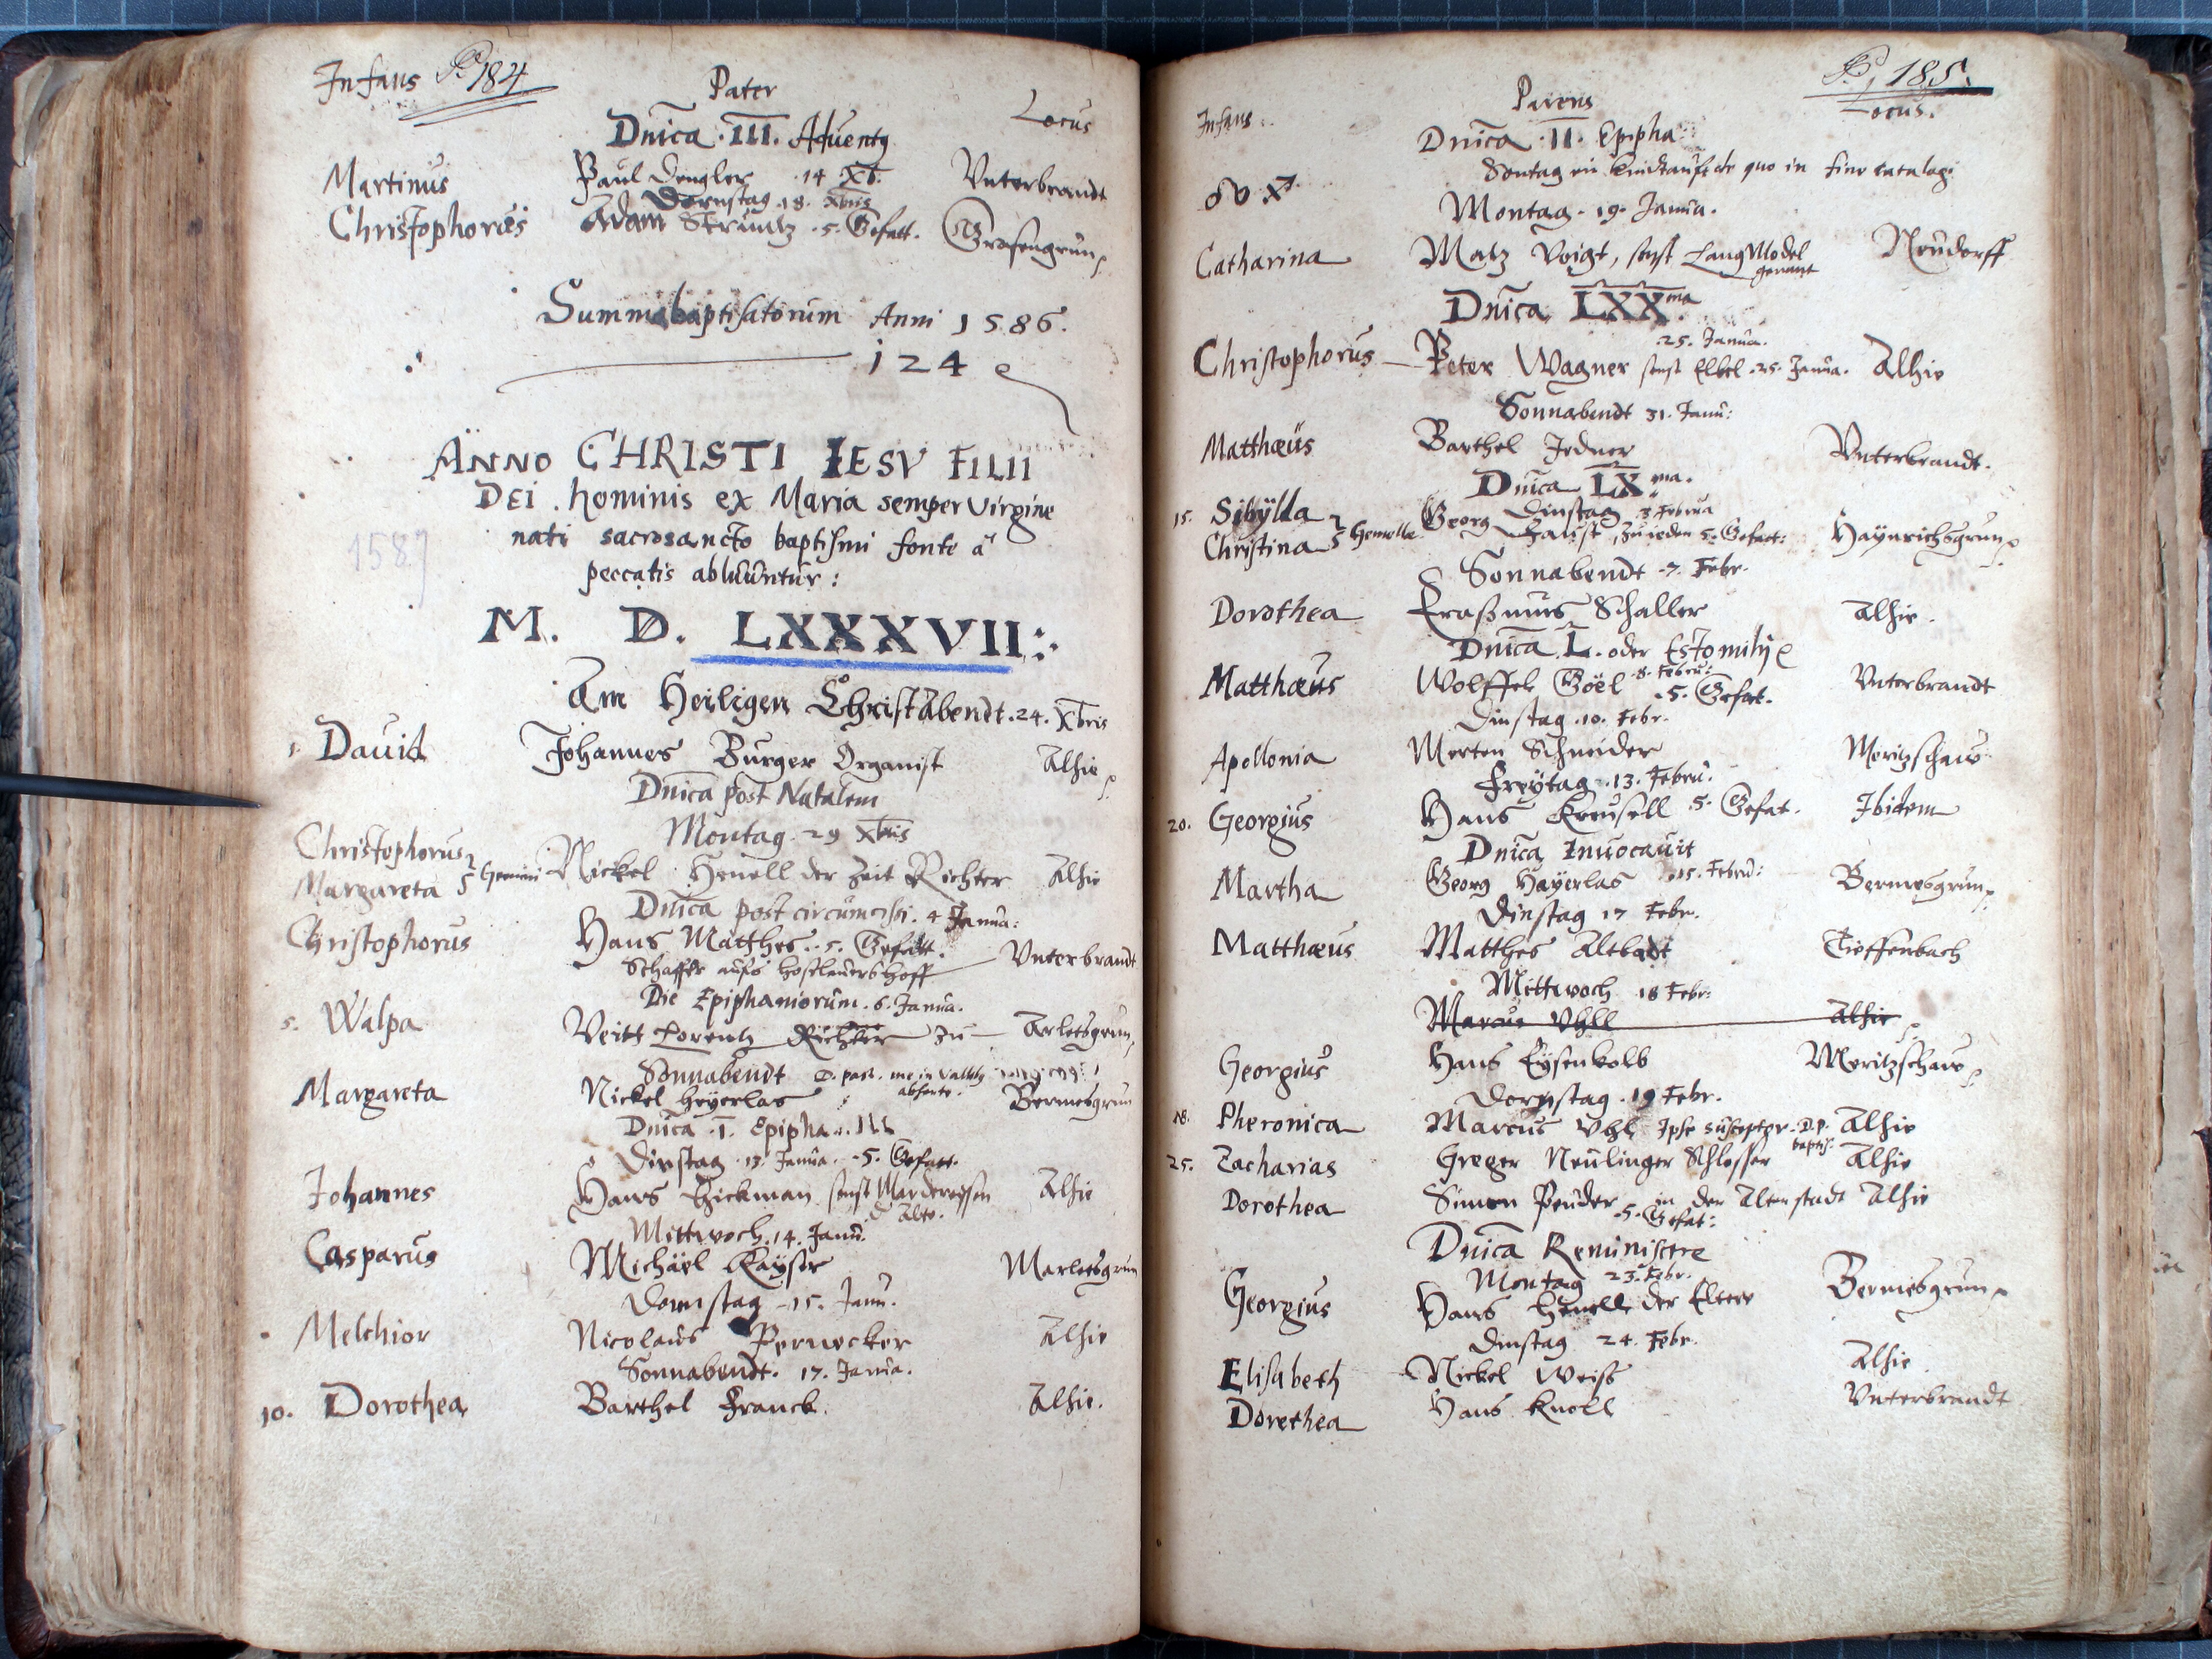 Infans P. 184
Pater
Locus
Dnica . III. Aduentg
Martinus Paul Dengler . 14 Xb. Vnterbrandt
Dornstag . 18. Xbris
Christophorus Adam Struntz . 5. Gefatt. Grasengrun
Summa baptisatorum Anni 1586.
124
ANNO CHRISTI IESV FILII
DEI . hominis ex Maria semper virgine
nati sacrosancto baptismi fonte a
peccatis abluuntur :
1587
M. D. LXXXVII :
Am Heiligen Christabendt . 24. Xbris
1. Dauid Johannes Burger Organist Alhie
Dnica post Natalem
Montag . 29 Xbris
Christophorus
Margareta Gemini Nickel Henell der Zeit Richter Alhie
Dnica post circumcisi. 4 Janua:
Christophorus Hans Matthes . 5. Gefatt. Vnterbrandt
Schaffer aufs hoff
Die Epiphaniorum . 6. Janua.
5. Walpa Veitt Lorentz Richter zu Arletsgrun
Sonnabendt D. past. me in
absente.
Margareta Nickel Heyerlas Bermesgrun
Dnica . I. Epipha
Dinstag . 13. Janua. . 5. Gefatt.
Johannes Hans Hickman sonst Alhie
d Alte.
Mittwoch . 14. Janu.
Casparus Michael Kayser Marletsgrun
Dornstag . 15. Janu.
Melchior Nicolaus Pernecker Alhie
Sonnabendt . 17. Janua.
10. Dorothea Barthel Franck. Alhie.
P. 185.
Infans . Parens Locus.
Dnica . II. Epipha
Sontag ein Kindtauft de quo in fine catalogi
♂ ♉ ♐
Montag . 19. Janua.
Catharina Matz Voigt, sonst LangModel Neudorff
genant
Dnica LXX ma
25. Janua.
Christophorus Peter Wagner sonst Elbel . 25. Janua. Alhie
Sonnabendt 31. Janu:
Matthæus Barthel Vnterbrandt.
Dnica LX ma.
Dinstag 3 Februa
15. Sibylla
Christina Gemelle Georg Faust, zu ieden 5. Gefatt: Haynrichsgrun
Sonnabendt . 7. Febr.
Dorothea Eraßmus Schaller Alhie.
Dnica . L. oder Estomihi
8. Febru:
Matthæus Wolffel Göel . 5. Gefat. Vnterbrandt
Dinstag . 10. Febr.
Apollonia Merten Schneider Meritzschaw
Freytag . 13. Febru.
20. Georgius Hans Kreusell 5. Gefat. Ibidem
Dnica Inuocauit
Martha Georg Hayerlas . 15. Febru: Bermesgrun
Dinstag 17 Febr.
Matthæus Matthes Altbadt Tieffenbach
Mittwoch 18 Febr:
Marcus Vhll Alhie
Georgius Hans Eysenkolb Meritzschaw
Dornstag . 19 Febr.
18. Pheronica Marcus Vhl Ipse susceptor. D.P. Alhie
baptis.
25. Zacharias Greger Neulinger Schlosser Alhie
Dorothea Simon Peuder in der Alten stadt Alhie
5. Gefat:
Dnica Reminiscere
Montag 23. Febr.
Georgius Hans Henell der Elter Bermesgrun
Dinstag 24. Febr.
Elisabeth Nickel Weiss Alhie
Dorethea Hans Knoll Vnterbrandt